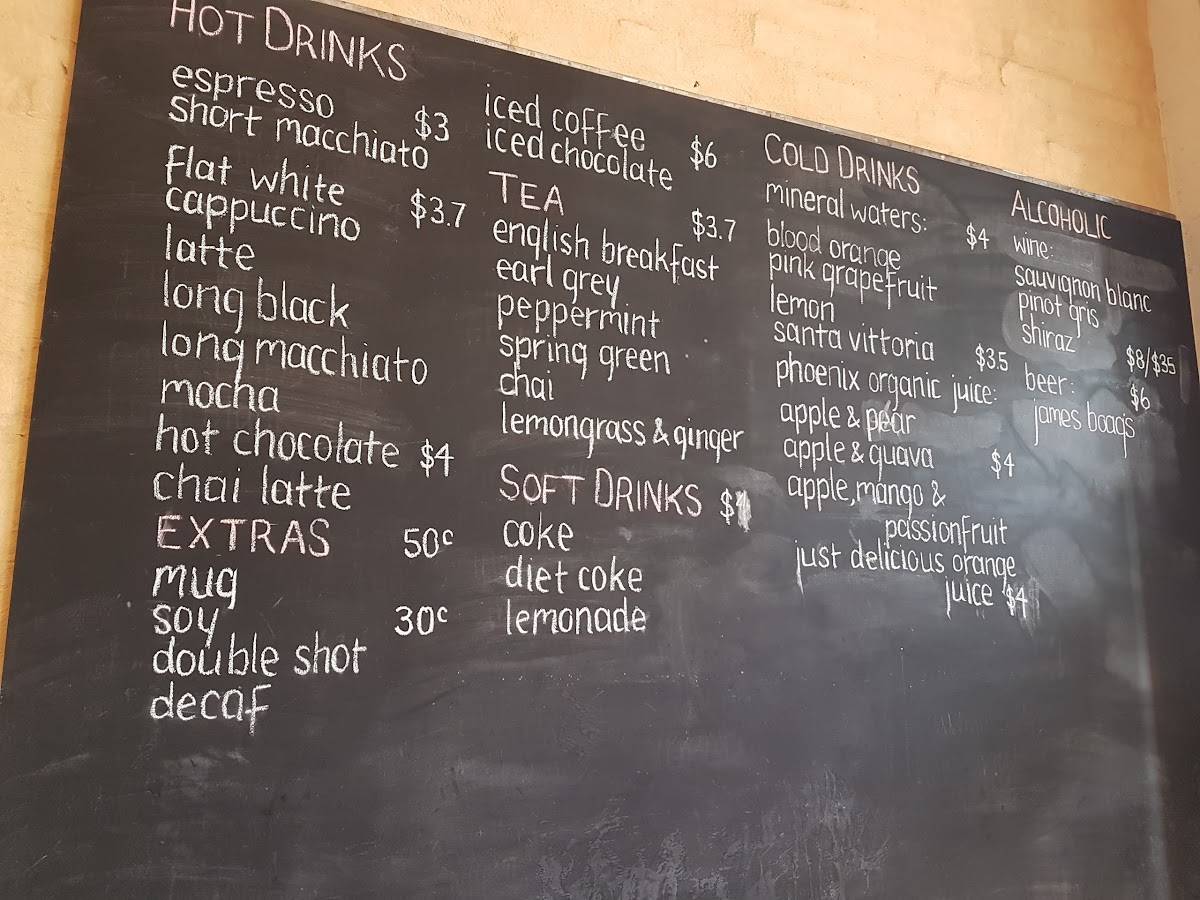 HOT DRINKS
espresso
short macchiato $3
flat white
cappuccino $3.7
latte
long black
long macchiato
mocha
hot chocolate $4
chai latte
EXTRAS 50c
mug
soy 30c
double shot
decaf
iced coffee
iced chocolate $6
TEA $3.7
english breakfast
earl grey
peppermint
spring green
chai
lemongrass & ginger
SOFT DRINKS
coke
diet coke
lemonade
COLD DRINKS
mineral waters: $4
blood orange
pink grapefruit
lemon
santa vittoria $3.5
phoenix organic juice:
apple & pear
apple & guava $4
apple, mango &
passionfruit
just delicious orange
juice $4
ALCOHOLIC
wine:
sauvignon blanc
pinot gris
shiraz $8/$35
beer: $6
james boag's